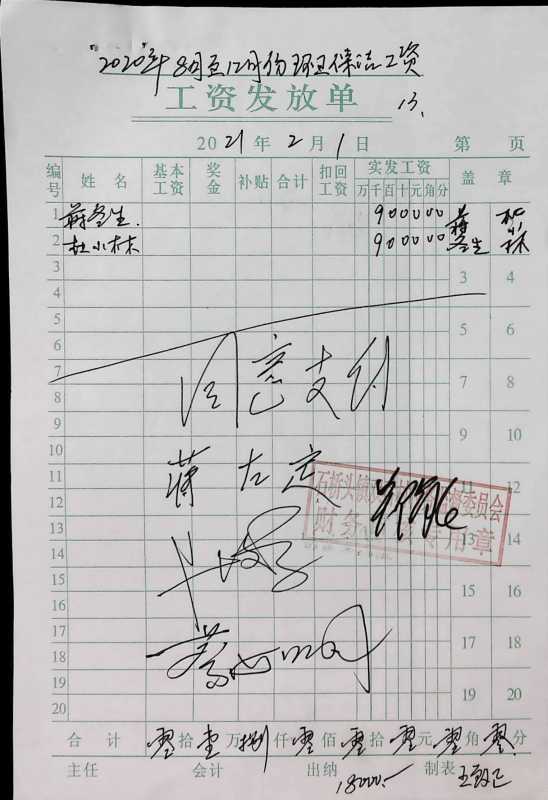 "2020"年8月至12月份环卫保洁工资
工资发放单
13.
2021年2月1日 第 页
编号 姓名 基本工资 奖金 补贴 合计 扣回工资 实发工资 万千百十元角分 盖章
1 蒋登生. 900000 蒋登生 杜小林
2 杜小林 900000
3 3 4
4
5 5 6
6
7 7 8
8
同意支付
9 9 10
10
11 蒋左定 11 12
12
石桥头镇 委员会
财务专用章
13 13 14
14
15 15 16
16
17 17 18
18
19 19 20
20
合计 零拾壹万捌仟零佰零拾零元零角零分
主任 会计 出纳 制表
18000.—